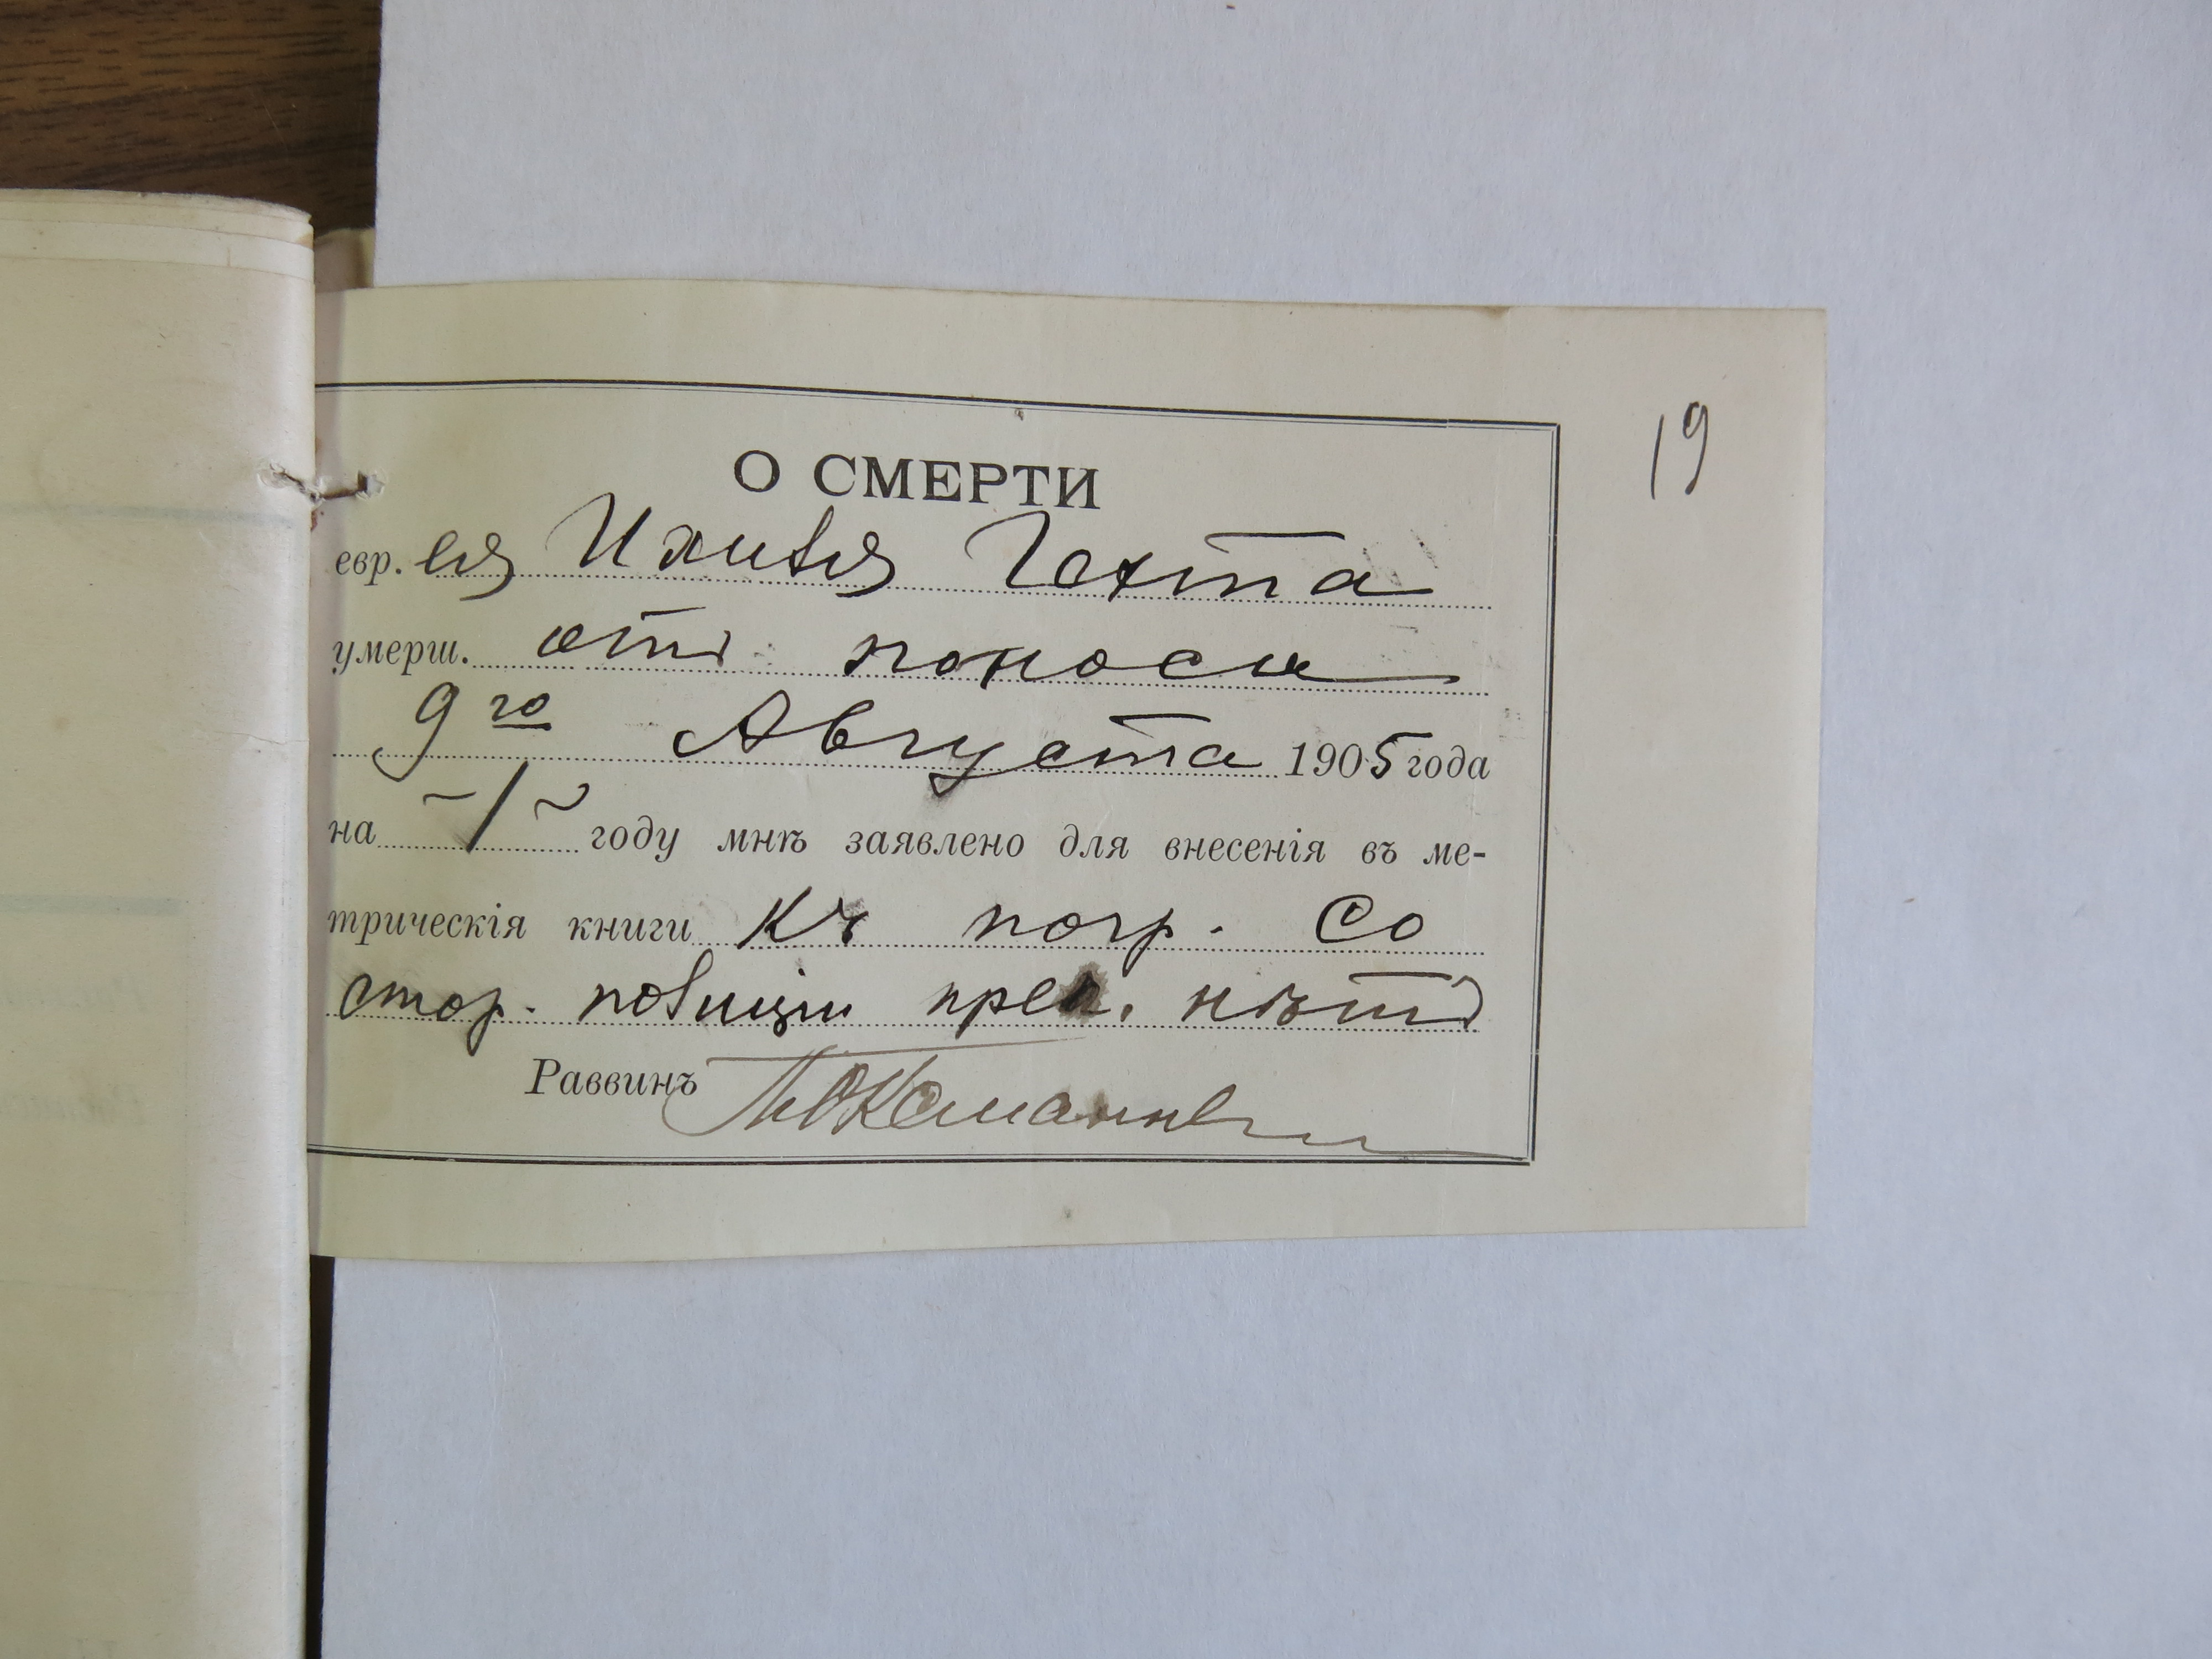 19
О СМЕРТИ
евр. ея Ихиля Гехта
умерш. отъ поноса
9го Августа 1905 года
на ~1~ году мнѣ заявлено для внесенія въ ме-
трическія книги Къ погр. Со
стор. полиціи преп. нѣтъ
Раввинъ